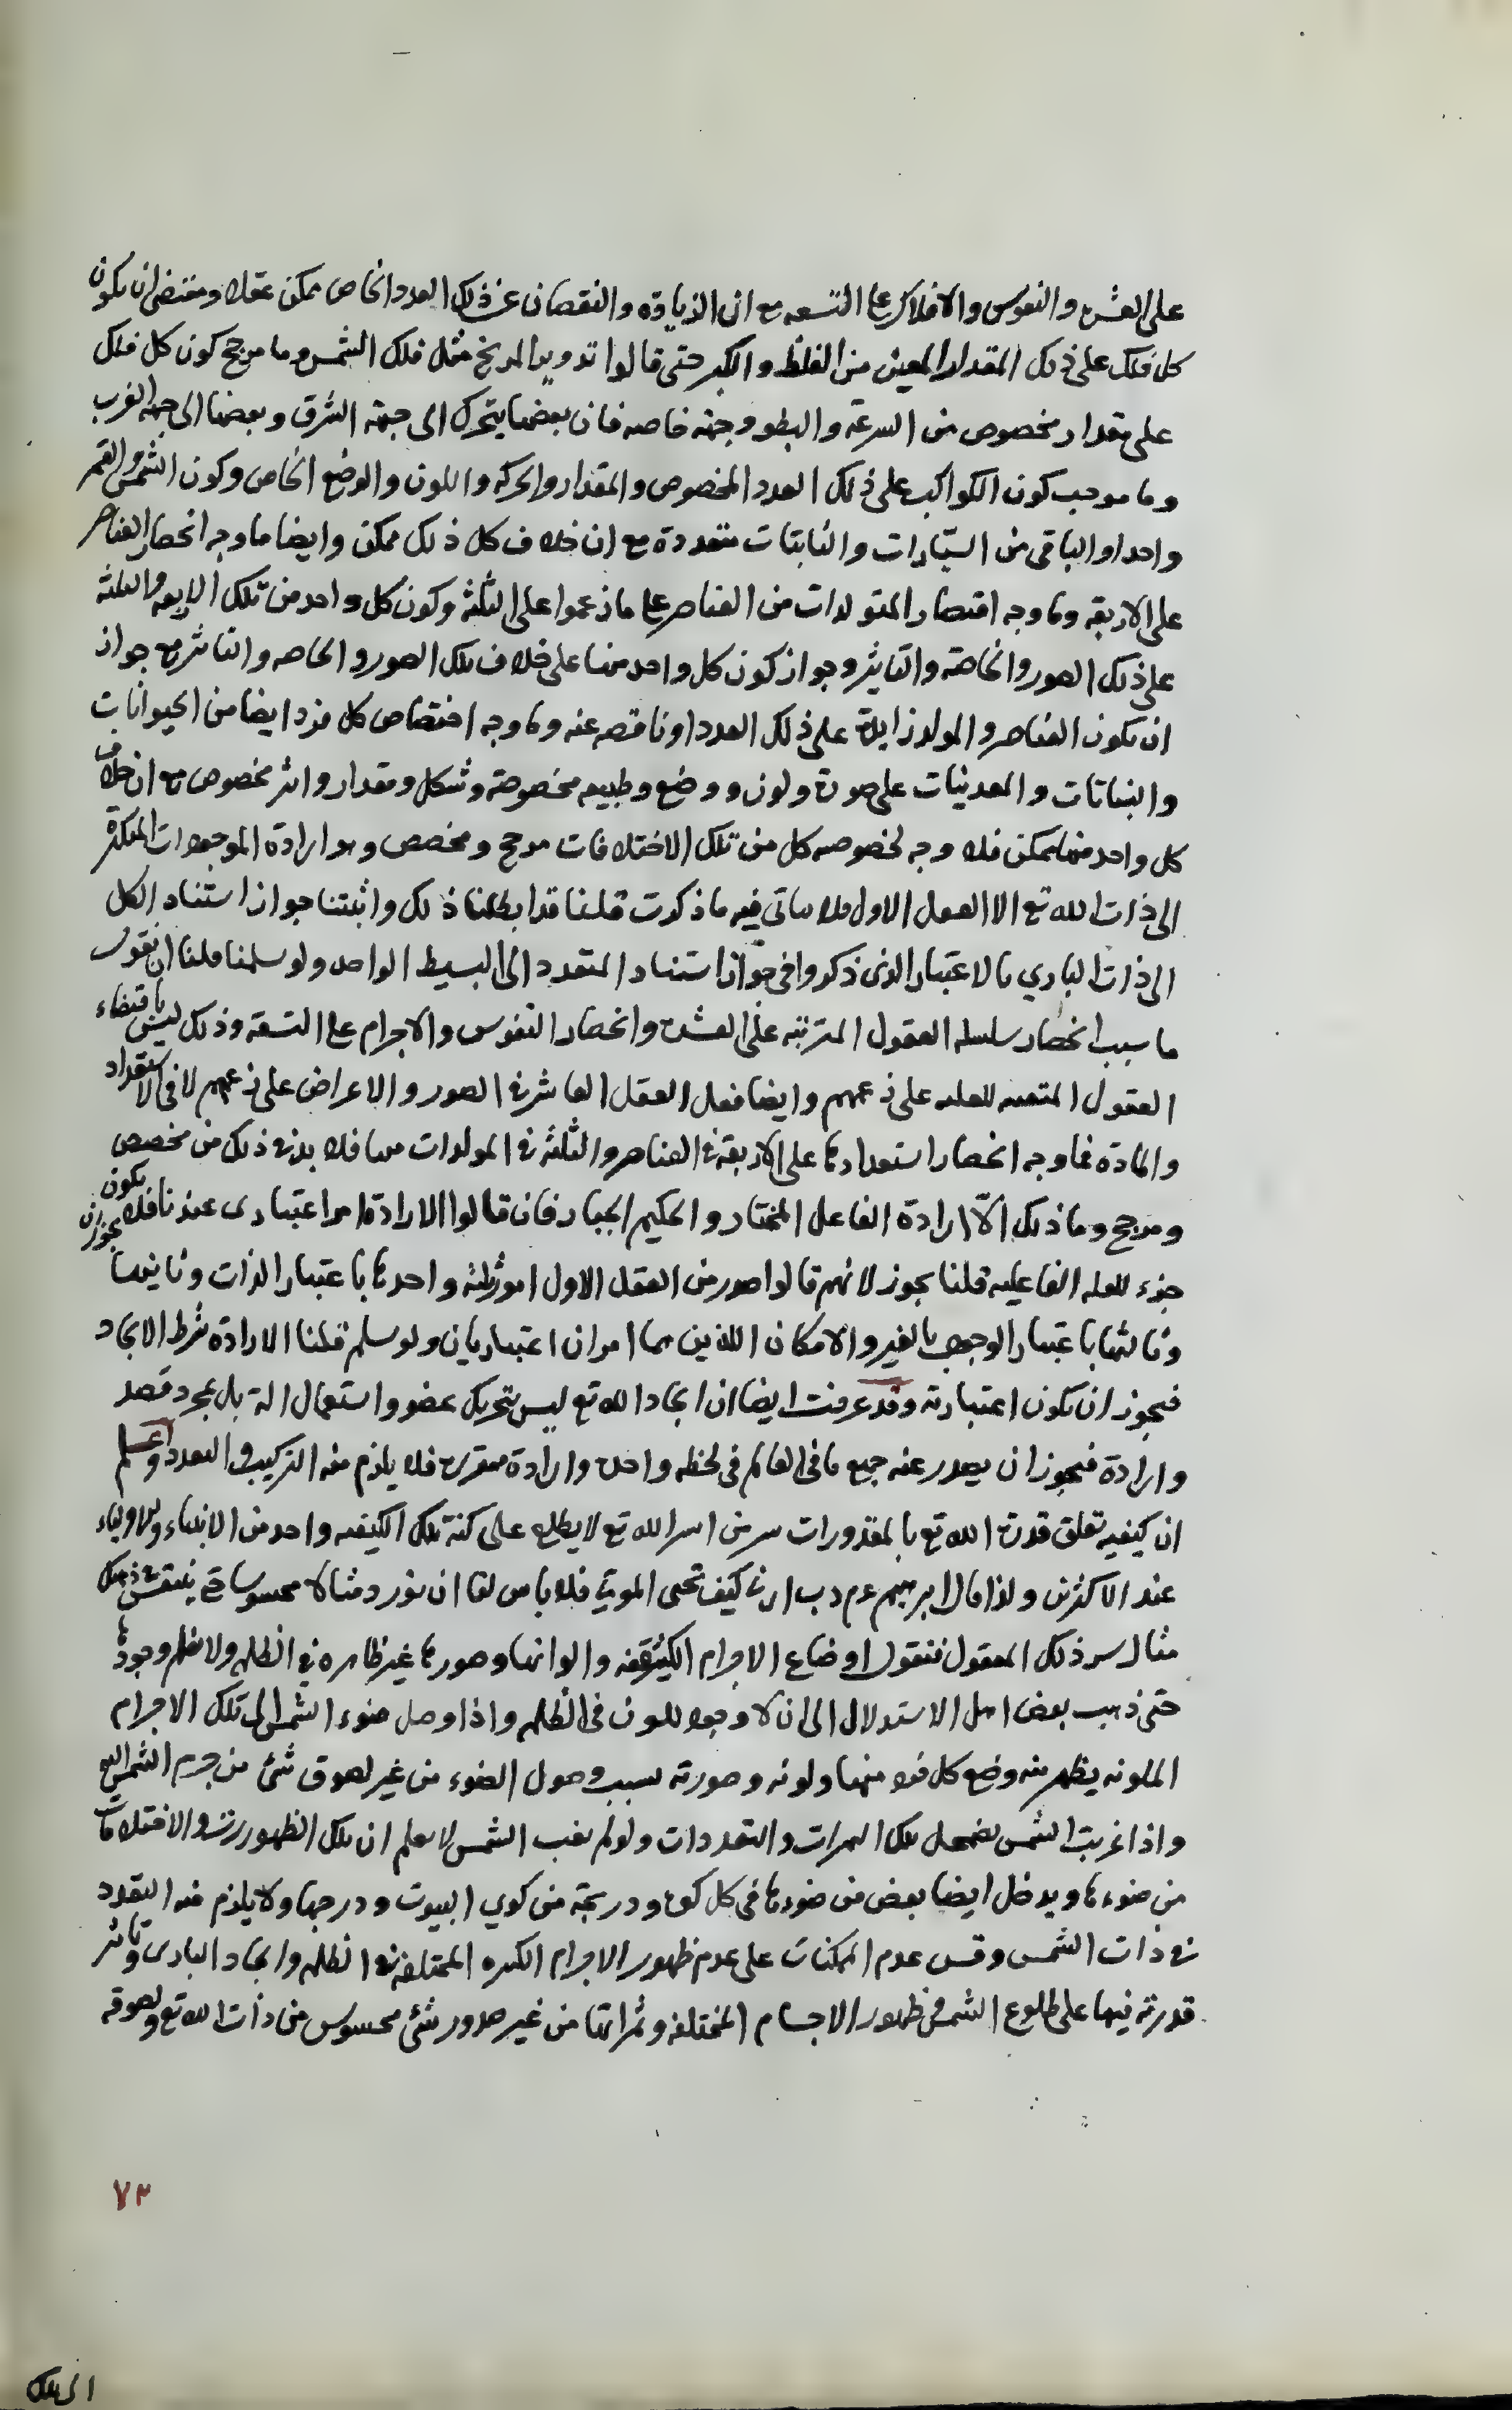 على العشرة والنفوس والافلاك على التسعه مع ان الزيادة والنقصان عن ذلك العدد الخاص ممكن عقلا ومقتضى ان يكون
كل فلك على ذلك المقدار المعين من الغلظ والكبر حتى قالوا تدوير المريخ مثل فلك الشمس وما مرجح كون كل فلك
على مقدار مخصوص من السرعة والبطو وجهة خاصه فان بعضها يتحرك الى جهة الشرق وبعضها الى جهة الغرب
وما موجب كون الكواكب على ذلك العدد المخصوص والمقدار والحركه واللون والوضع الخاص وكون الشمس والقمر
واحدا والباقى من السيّارات والثابتات متعددة مع ان خلاف كل ذلك ممكن وايضا ما وجه انحصار العناصر
على الاربعة وما وجه اقتصار المتولدات من العناصر على ما زعموا على الثلثة وكون كل واحد من تلك الاربعه والثلثة
على ذلك الصور والخاصة والتاثير وجواز كون كل واحد منها على خلاف تلك الصور والخاصه والتاثير مع جواز
ان تكون العناصر والمولد زايدة على ذلك العدد او ناقصه عنه وما وجه اختصاص كل فرد ايضا من الحيوانات
والنباتات والمعدنيات على صورة ولون ووضع وطبيعه مخصوصة وشكل ومقدار واثر مخصوص مع ان خلاف
كل واحد منها ممكن فلا وجه لخصوصه كل من تلك الاختلافات مرجح ومخصص وهو ارادة الموجودات المتكثرة
الى ذات الله تع الا العقل الاول فلا يتاتى فيه ما ذكرت قلنا قد ابطلنا ذلك واثبتنا جواز استناد الكل
الى ذات البارى بالاعتبار الذى ذكروا فى جواز استناد المتعدد الى البسيط الواحد ولو سلمنا فلنا ان نقول
ما سبب انحصار سلسله العقول المترتبه على العشرة وانحصار النفوس والاجرام على التسعة وذلك ليس باقتضاء
العقول المتعينه للعليه على زعمهم وايضا فعل العقل العاشر فى الصور والاعراض على زعمهم لا فى الاستعداد
والمادة فما وجه انحصار استعدادها على الاربعة فى العناصر والثلثة فى المولدات منها فلا بد فى ذلك من مخصص
ومرجح وما ذلك الّا ارادة الفاعل المختار والحكيم الجبار فان قالوا الارادة امر اعتبارى عندنا فلا يجوز ان يكون
جزء للعله الفاعليه قلنا يجوز لانهم قالوا صدر من العقل الاول امور ثلثة واحدها باعتبار الذات وثانيها
وثالثها باعتبار الوجوب بالغير والامكان اللذين هما امران اعتباريان ولو سلم قلنا الارادة شرط الايجاد
فيجوز ان تكون اعتبارية وقد عرفت ايضا ان ايجاد الله تع ليس بتحريك عضو واستعمال الة بل بمجرد قصد
وارادة فيجوز ان يصدر عنه جميع ما فى العالم فى لحظه واحدة وارادة فلا يلزم منه التركيب والتعدد واعلم
ان كيفيه تعلق قدرة الله تع بالمقدورات سر من اسرار الله تع لا يطلع على كنه تلك الكيفيه واحد من الانبياء والاولياء
عند الاكثرين ولذا قال ابرهيم عم رب ارنى كيف تحيى الموتى فلا باس لنا ان نورد مثالا محسوسا حتى ينتقش فى ذهنك
مثال سر ذلك المعقول فنقول اوضاع الاجرام الكثيفه والوانها وصورها غير ظاهره فى الظلمه ولا نعلم وجودها
حتى ذهب بعض اهل الاستدلال الى ان لا وجود للون فى الظلمه واذا وصل ضوء الشمس الى تلك الاجرام
الملونه يظهر منه وضع كل فرد منها ولونه وصورته بسبب وصول الضوء من غير لصوق شئ من جرم الشمس اليها
واذا غربت الشمس يضمحل تلك والتعددات ولو لم تغب الشمس لا يعلم ان تلك الظهور والاختلافات
من ضوءها ويدخل ايضا بعض من ضوءها فى كل كوة ودريجة من كوى البيوت ودرجها ولا يلزم منه التعدد
فى ذات الشمس وقس عدم الممكنات على عدم ظهور الاجرام المختلفه فى الظلمه وايجاد البارى وتاثير
قدرته فيها على طلوع الشمس فى ظهور الاجسام المختلفه وثمراتها من غير صدور شئ محسوس من ذات الله تع ولصوقه
٧٣
الى تلك